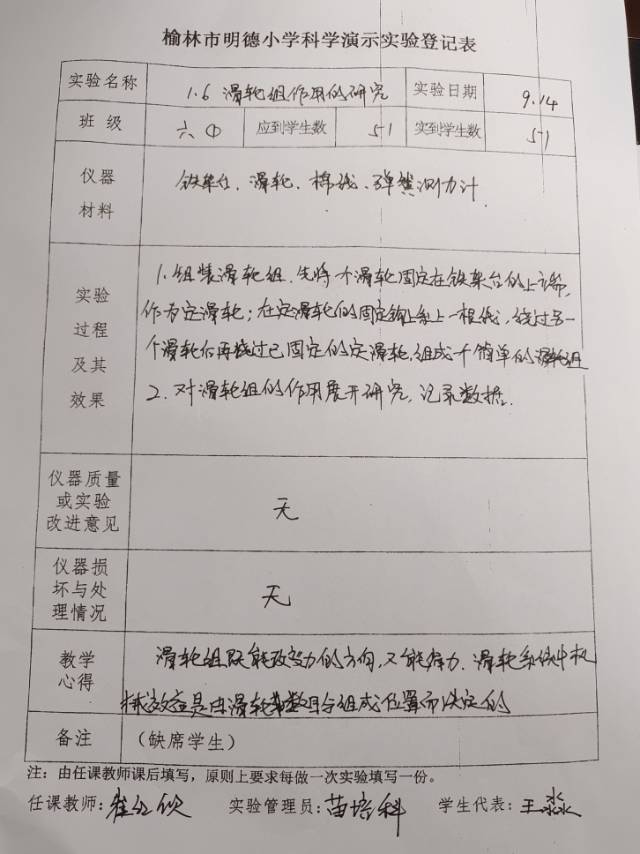 榆林市明德小学科学演示实验登记表
实验名称 1.6 滑轮组作用的研究 实验日期 9.14
班 级 六① 应到学生数 51 实到学生数 51
仪器
材料
铁架台、滑轮、棉线、弹簧测力计
实验
过程
及其
效果
1、组装滑轮组、先将个滑轮固定在铁架台的上方部,
作为定滑轮;在定滑轮的固定钩上系上一根线,绕过另一
个滑轮后再绕过已固定的定滑轮,组成个简单的滑轮组
2、对滑轮组的作用展开研究,记录数据.
仪器质量
或实验
改进意见
无
仪器损
坏与处
理情况
无
教学
心得
滑轮组既能改变力的方向,又能省力.滑轮系统中机
械效应是由滑轮数目与组成位置而决定的
备注 (缺席学生)
注:由任课教师课后填写,原则上要求每做一次实验填写一份。
任课教师: 实验管理员:苗培科 学生代表:王淼